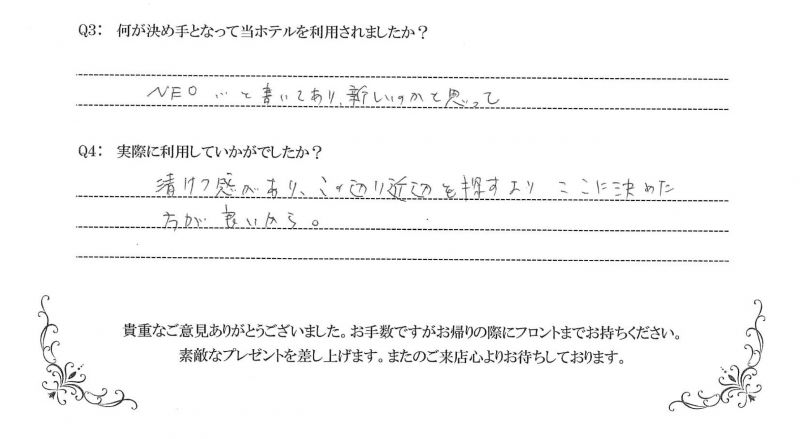 Q3: 何が決め手となって当ホテルを利用されましたか?
NEO いと書いてあり、新しいのかと思って
Q4: 実際に利用していかがでしたか?
清けつ感があり、この辺り近辺を探すより ここに決めた
方が良いから。
貴重なご意見ありがとうございました。お手数ですがお帰りの際にフロントまでお持ちください。
素敵なプレゼントを差し上げます。またのご来店心よりお待ちしております。